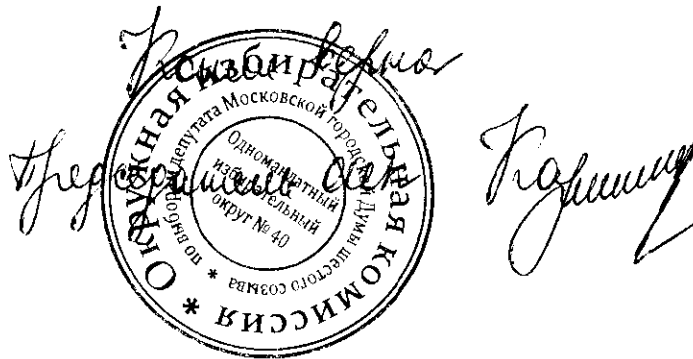 Копия верна
Председатель ОИК
Окружная избирательная комиссия *
по выборам депутата Московской городской Думы шестого созыва *
Одномандатный
избирательный
округ № 40